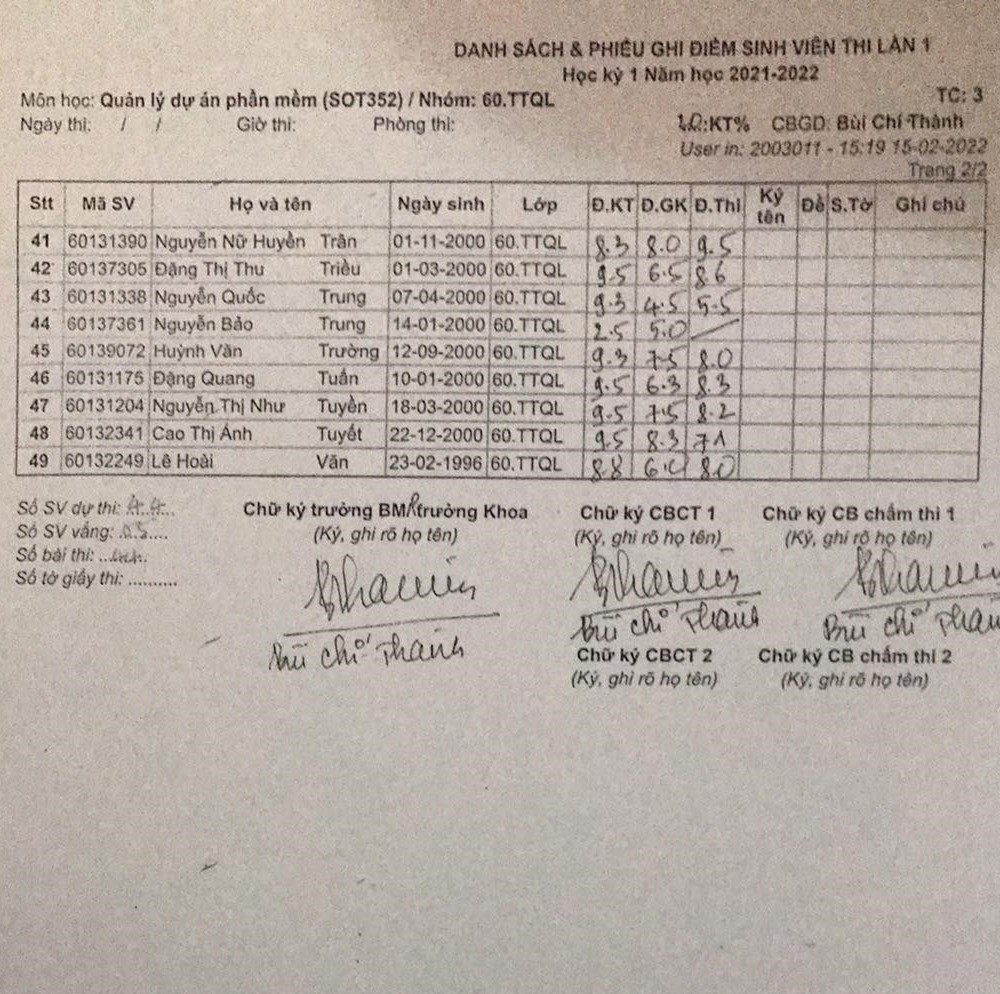 DANH SÁCH & PHIẾU GHI ĐIỂM SINH VIÊN THI LẦN 1
Học kỳ 1 Năm học 2021-2022
Môn học: Quản lý dự án phần mềm (SOT352) / Nhóm: 60.TTQL TC: 3
Ngày thi: / / Giờ thi: Phòng thi: KT% CBGD: Bùi Chí Thành
User in: 2003011 - 15:19 15-02-2022
Trang 2/2
Stt Mã SV Họ và tên Ngày sinh Lớp Đ.KT Đ.GK Đ.Thi Ký tên Đề S.Tờ Ghi chú
41 60131390 Nguyễn Nữ Huyền Trân 01-11-2000 60.TTQL 8.3 8.0 9.5
42 60137305 Đặng Thị Thu Triều 01-03-2000 60.TTQL 9.5 6.5 8.6
43 60131338 Nguyễn Quốc Trung 07-04-2000 60.TTQL 9.3 4.5 5.5
44 60137361 Nguyễn Bảo Trung 14-01-2000 60.TTQL 2.5 5.0
45 60139072 Huỳnh Văn Trường 12-09-2000 60.TTQL 9.3 7.5 8.0
46 60131175 Đặng Quang Tuấn 10-01-2000 60.TTQL 9.5 6.3 8.3
47 60131204 Nguyễn Thị Như Tuyền 18-03-2000 60.TTQL 9.5 7.5 8.2
48 60132341 Cao Thị Ánh Tuyết 22-12-2000 60.TTQL 9.5 8.3 7.1
49 60132249 Lê Hoài Văn 23-02-1996 60.TTQL 8.8 8.0
Số SV dự thi: Chữ ký trưởng BM/trưởng Khoa Chữ ký CBCT 1 Chữ ký CB chấm thi 1
Số SV vắng: (Ký, ghi rõ họ tên) (Ký, ghi rõ họ tên) (Ký, ghi rõ họ tên)
Số bài thi:
Số tờ giấy thi: ..........
Bùi Chí Thành Bùi Chí Thành Bùi Chí Thành
Chữ ký CBCT 2 Chữ ký CB chấm thi 2
(Ký, ghi rõ họ tên) (Ký, ghi rõ họ tên)